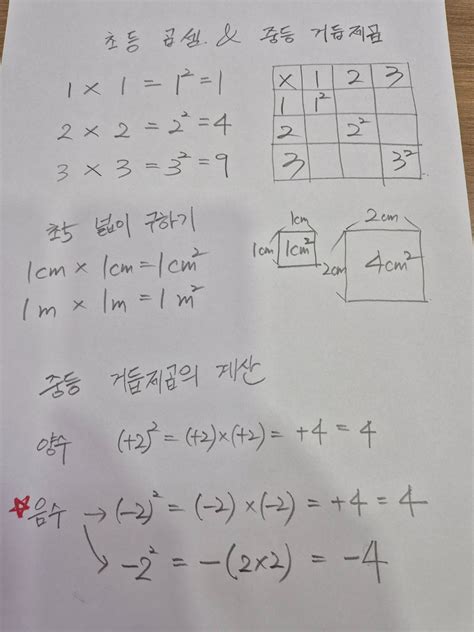 초등 곱셈. & 중등 거듭제곱
1 × 1 = 1² = 1
2 × 2 = 2² = 4
3 × 3 = 3² = 9
× 1 2 3
1 1²
2 2²
3 3²
초5 넓이 구하기
1cm × 1cm = 1cm²
1m × 1m = 1m²
1cm
1cm 1cm²
2cm
2cm 4cm²
중등 거듭제곱의 계산
양수 (+2)² = (+2)×(+2) = +4 = 4
☆음수 → (-2)² = (-2)×(-2) = +4 = 4
→ -2² = -(2×2) = -4